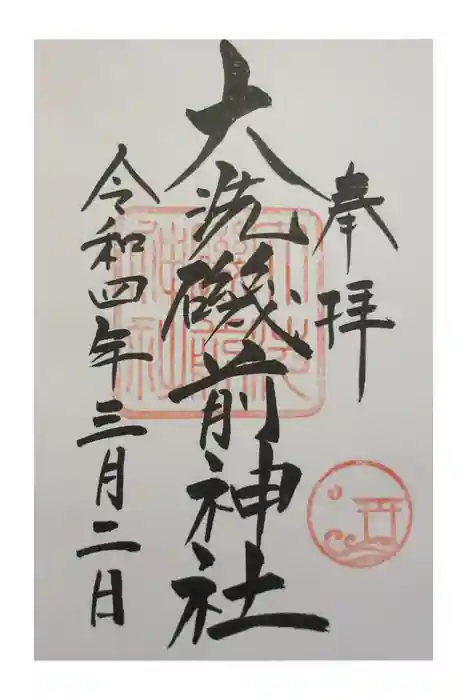 奉拝
大洗磯前神社
令和四年三月二日